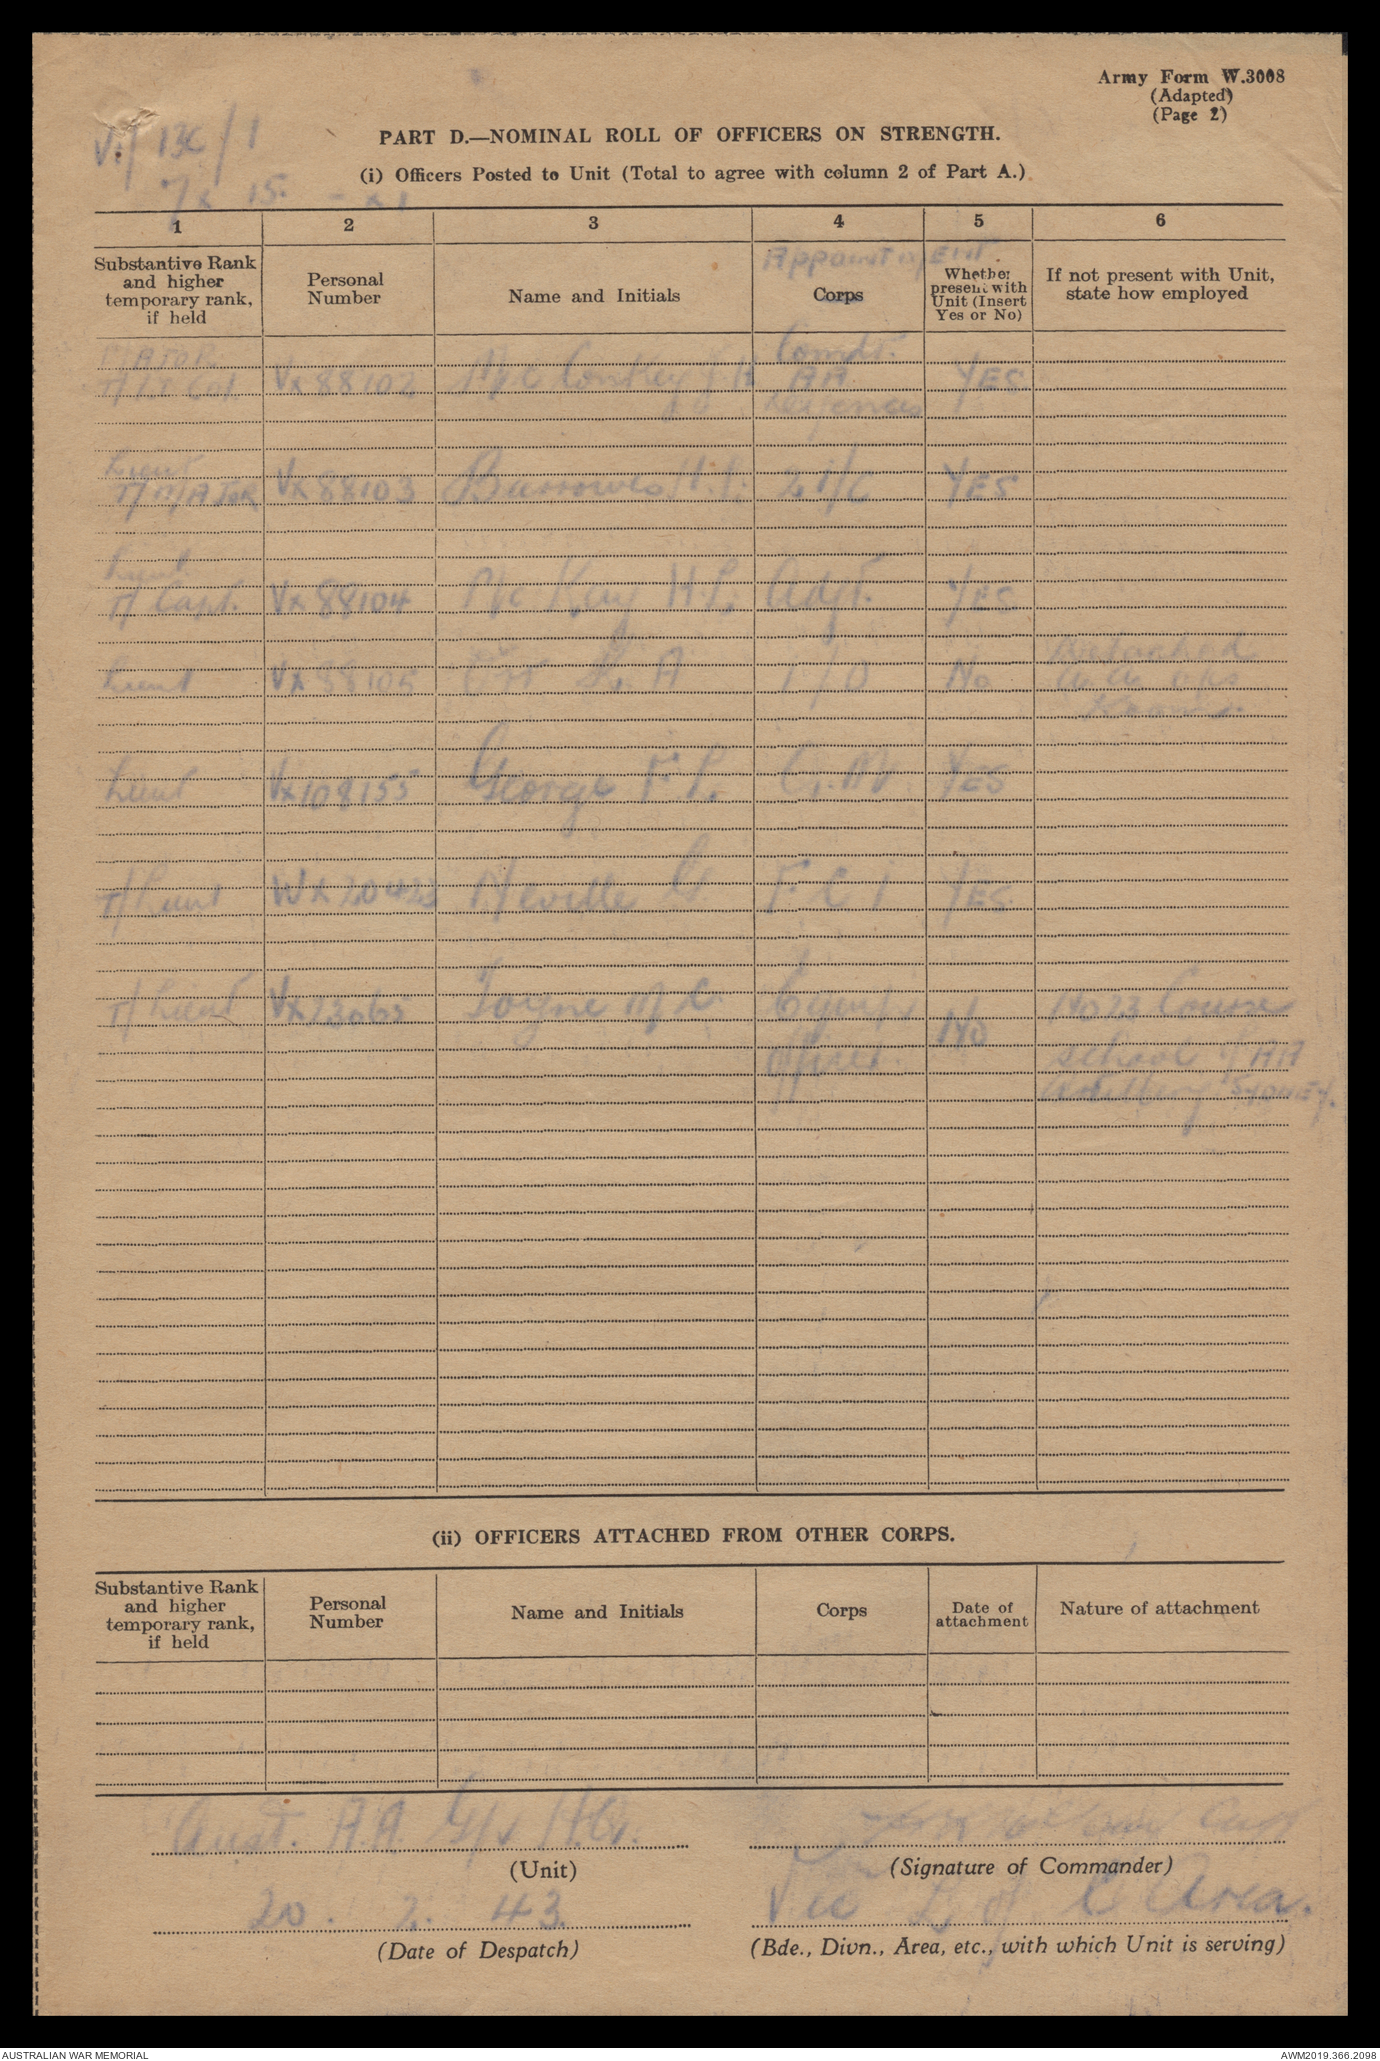 Army Form W.3008
(Adapted)
(Page 2)
PART D.—NOMINAL ROLL OF OFFICERS ON STRENGTH.
(i) Officers Posted to Unit (Total to agree with column 2 of Part A.)
1 2 3 4 5 6
Substantive Rank and higher temporary rank, if held
Personal Number
Name and Initials
Appointment
Corps
Whether present with Unit (Insert Yes or No)
If not present with Unit, state how employed
MAJOR
T/Lt Col Vx88102 McConkey J H Comdt. AA Defences YES
Lieut
T/MAJOR Vx88103 Burrows H.L. 2 i/c YES
Lieut.
T/Capt. Vx88104 McKay H.L. Adjt. YES
Lieut Vx88105 A I/O No Detached A.A. ops
Lieut Vx108155 George F.L. YES
T/Lieut Neville G. YES
T/Lieut Vx13065 Toyne M C. Equip Officer No No 23 Course School of AA Artillery SYDNEY.
(ii) OFFICERS ATTACHED FROM OTHER CORPS.
Substantive Rank and higher temporary rank, if held
Personal Number
Name and Initials
Corps
Date of attachment
Nature of attachment
Aust. A.A. Gp H.Q.
(Unit)
(Signature of Commander)
20. 2. 43
Vic L of C Area.
(Date of Despatch)
(Bde., Divn., Area, etc., with which Unit is serving)
AUSTRALIAN WAR MEMORIAL
AWM2019.366.2098